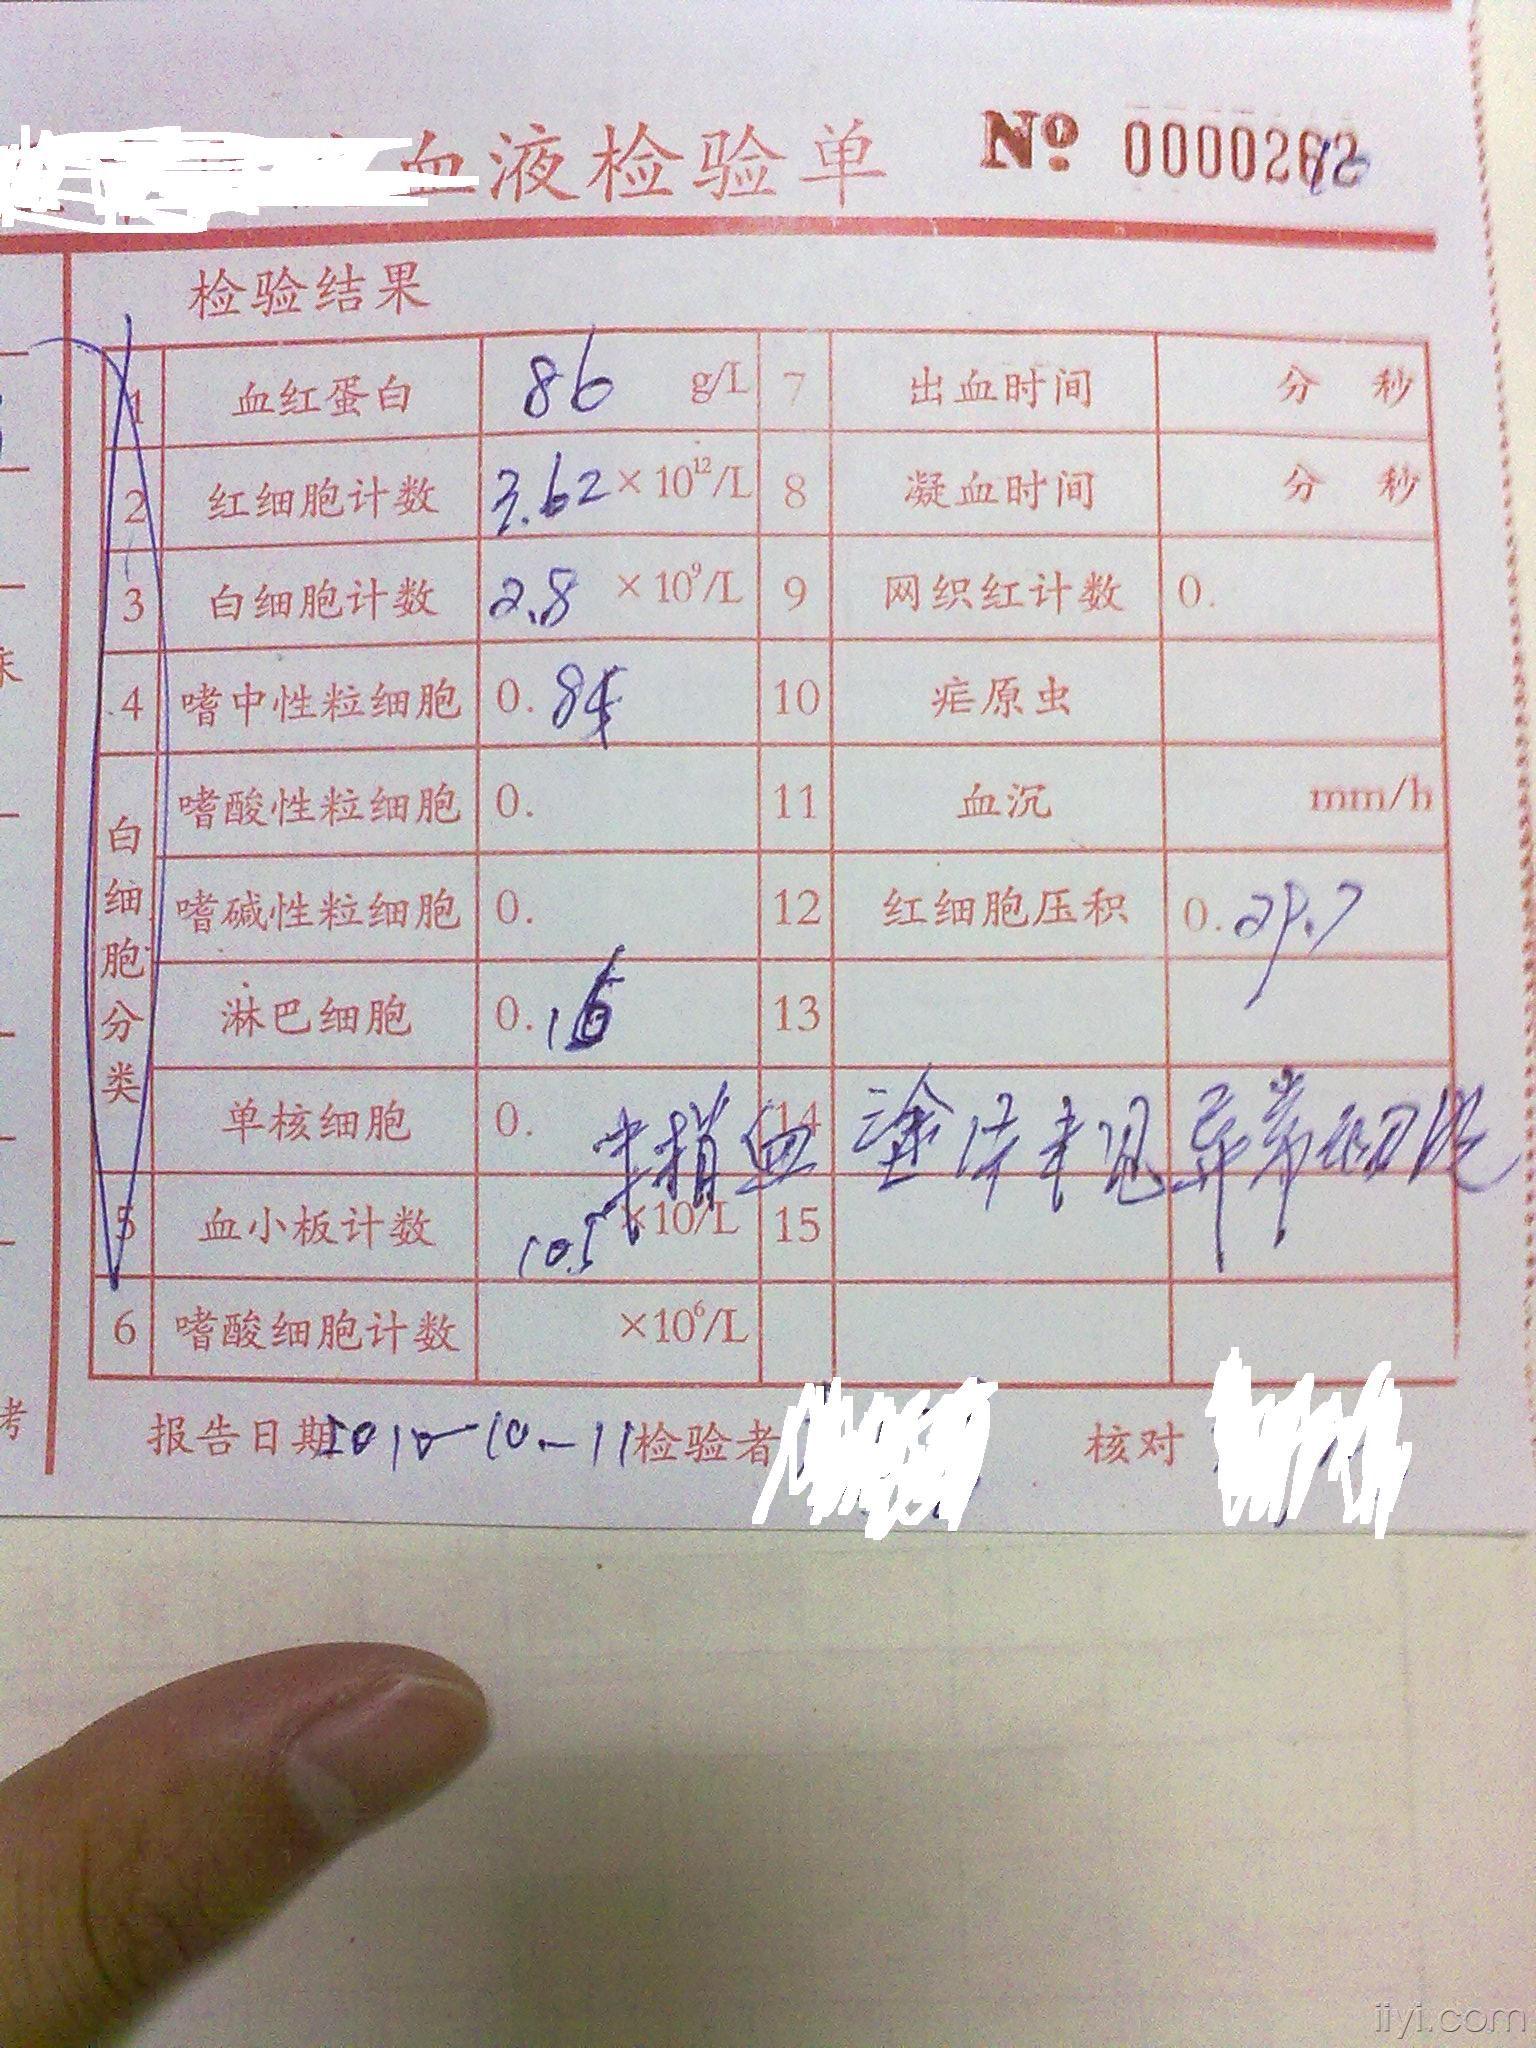 血液检验单 № 0000262
检验结果
1 血红蛋白 86 g/L 7 出血时间 分 秒
2 红细胞计数 3.62 ×10¹²/L 8 凝血时间 分 秒
3 白细胞计数 2.8 ×10⁹/L 9 网织红计数 0.
4 嗜中性粒细胞 0.84 10 疟原虫
白细胞分类
嗜酸性粒细胞 0. 11 血沉 mm/h
嗜碱性粒细胞 0. 12 红细胞压积 0.29.7
淋巴细胞 0.16 13
单核细胞 0. 14
末梢血涂片未见异常细胞
5 血小板计数 105 ×10/L 15
6 嗜酸细胞计数 ×10⁶/L
报告日期 2010-10-11 检验者 核对
考
iiyi.com